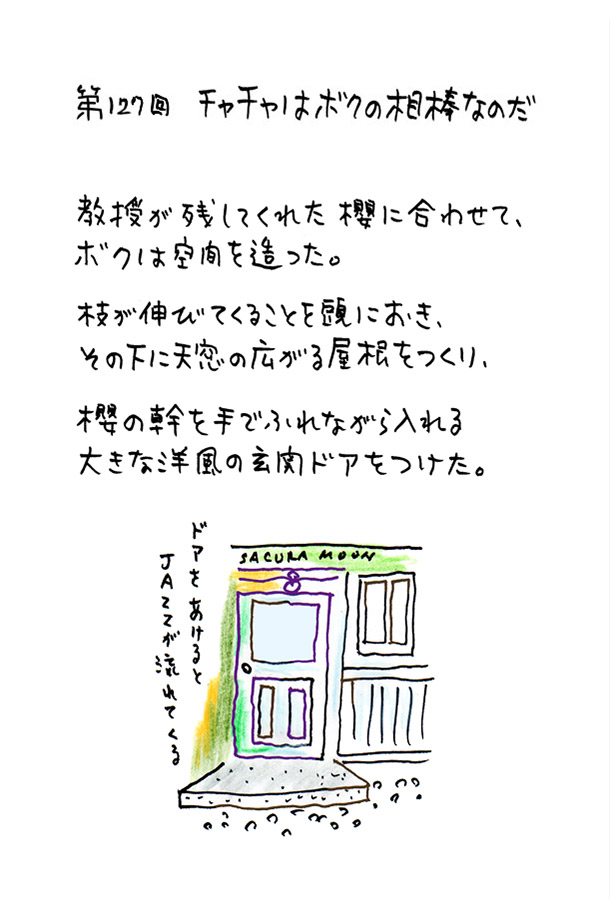 第127回 チャチャはボクの相棒なのだ
教授が残してくれた櫻に合わせて、
ボクは空間を造った。
枝が伸びてくることを頭におき、
その下に天窓の広がる屋根をつくり、
櫻の幹を手でふれながら入れる
大きな洋風の玄関ドアをつけた。
ドアをあけると
JAZZが流れてくる
SACURA MOON